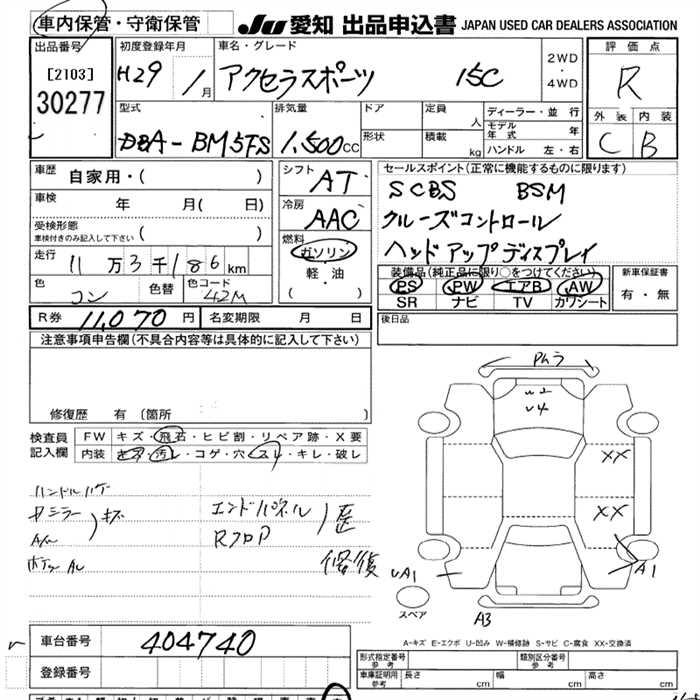 車内保管・守衛保管
JU 愛知 出品申込書 JAPAN USED CAR DEALERS ASSOCIATION
出品番号
[2103]
30277
初度登録年月
H29 / 月
車名・グレード
アクセラスポーツ 15C
2WD
・
4WD
評価点
R
外装 内装
C B
型式
DBA-BM5FS
排気量
1,500cc
ドア
形状
定員
人
積載
kg
ディーラー・並行
モデル年式
年
ハンドル 左・右
車歴
自家用・( )
車検
年 月( 日)
受検形態
車検付きのみ記入して下さい
( )
走行
11万3千186km
色
コン
色替
色コード
42M
シフト
AT
冷房
AAC
燃料
ガソリン
・
軽・油
( )
セールスポイント(正常に機能するものに限ります)
SCBS BSM
クルーズコントロール
ヘッドアップディスプレイ
装備品(純正品に限り○をつけてください)
PS PW エアB AW
SR ナビ TV カワシート
新車保証書
有・無
R券 11,070 円
名変期限 月 日
後日品
注意事項申告欄(不具合内容等は具体的に記入して下さい)
修復歴 有 〔箇所 〕
検査員
記入欄
FW キズ・飛石・ヒビ割・リペア跡・X要
内装 キズ・汚レ・コゲ・穴・スレ・キレ・破レ
ハンドルハゲ
キズ
エンドパネル
RフロP
歴
修復
PMラ
U2
U4
XX
XX
UA1
A1
A3
スペア
A-キズ E-エクボ U-凹み W-補修跡 S-サビ C-腐食 XX-交換済
車台番号
404740
登録番号
形式指定番号
参考
類別区分番号
参考
車庫証明用
参考
長さ cm
幅 cm
高さ cm